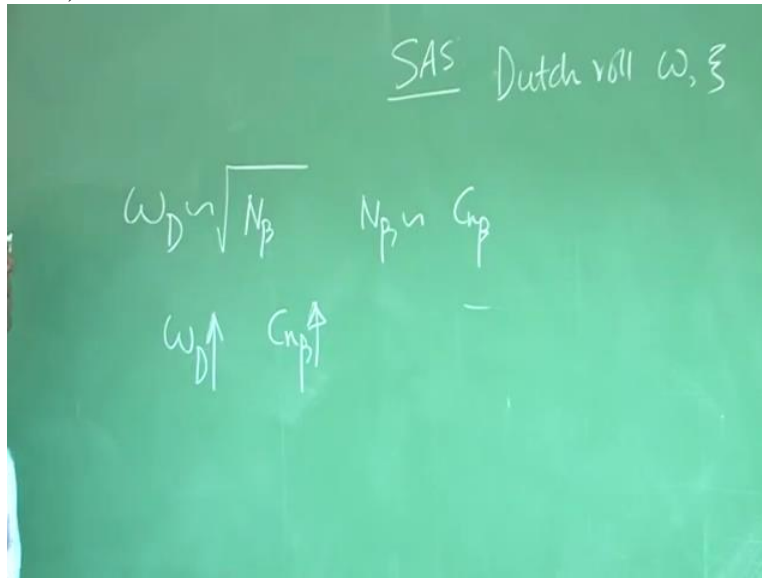 SAS Dutch roll ω, ξ
ω_D ~ √N_β N_β ~ C_nβ
ω_D↑ C_nβ↑